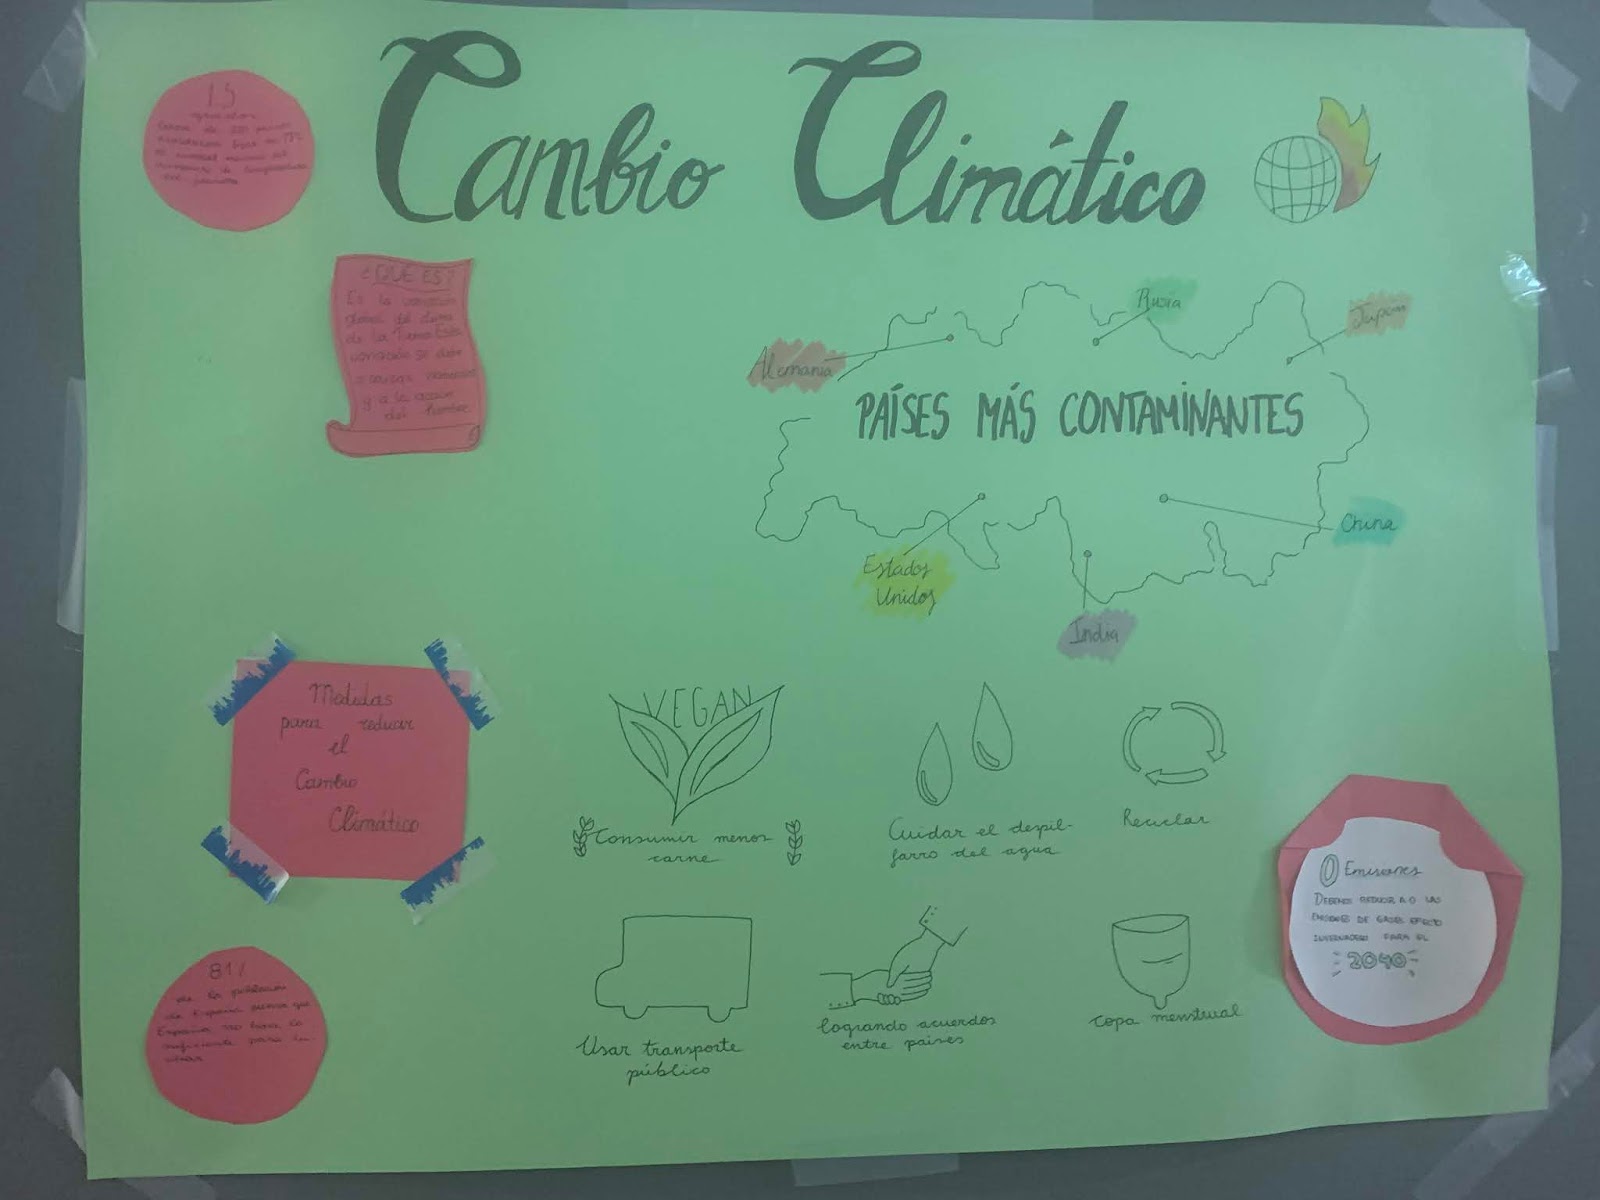 Cambio Climático
1.5
¿QUÉ ES?
Es la variación
global del clima
de la Tierra. Esta
variación se debe
a causas naturales
y a la acción
del hombre
Alemania
Rusia
Japón
PAÍSES MÁS CONTAMINANTES
China
Estados
Unidos
India
Medidas
para reducir
el
Cambio
Climático
VEGAN
Consumir menos
carne
Cuidar el despil-
farro del agua
Reciclar
0 Emisiones
DEBEMOS REDUCIR A 0 LAS
EMISIONES DE GASES EFECTO
INVERNADERO PARA EL
2040
81%
de la población
de España piensa que
España no hace lo
suficiente para
Usar transporte
público
logrando acuerdos
entre países
copa menstrual